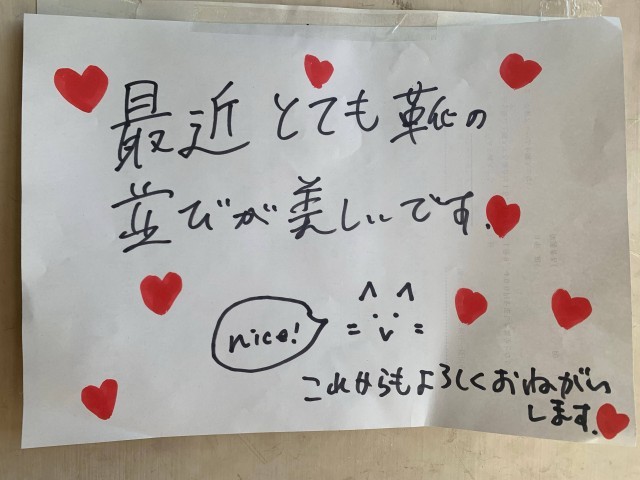 最近とても靴の
並びが美しいです.
nice!
これからもよろしくおねがい
します.